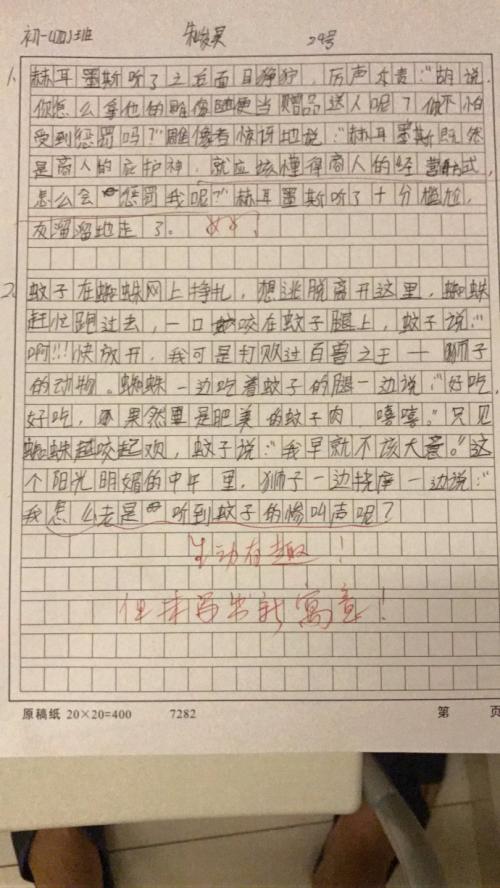 初一(四)班 29号
1. 赫耳墨斯听了之后面目狰狞，厉声斥责："胡说，
你怎么拿他的雕像随便当赠品送人呢？你不怕
受到惩罚吗？"雕像者惊讶地说："赫耳墨斯既然
是商人的庇护神，就应该懂得商人的经营方式，
怎么会惩罚我呢？"赫耳墨斯听了十分尴尬，
灰溜溜地走了。
2. 蚊子在蜘蛛网上挣扎，想逃脱离开这里，蜘蛛
赶忙跑过去，一口咬在蚊子腿上，蚊子说："
啊!!!快放开，我可是打败过百兽之王——狮子
的动物。蜘蛛一边吃着蚊子的腿一边说："好吃，
好吃，果然是肥美的蚊子肉，嘻嘻。"只见
蜘蛛越咬起欢，蚊子说："我早就不该大意。"这
个阳光明媚的中午里，狮子一边挠痒一边说："
我怎么老是听到蚊子的惨叫声呢？
生动有趣！
但未写出新寓意！
原稿纸 20×20=400 7282 第 页